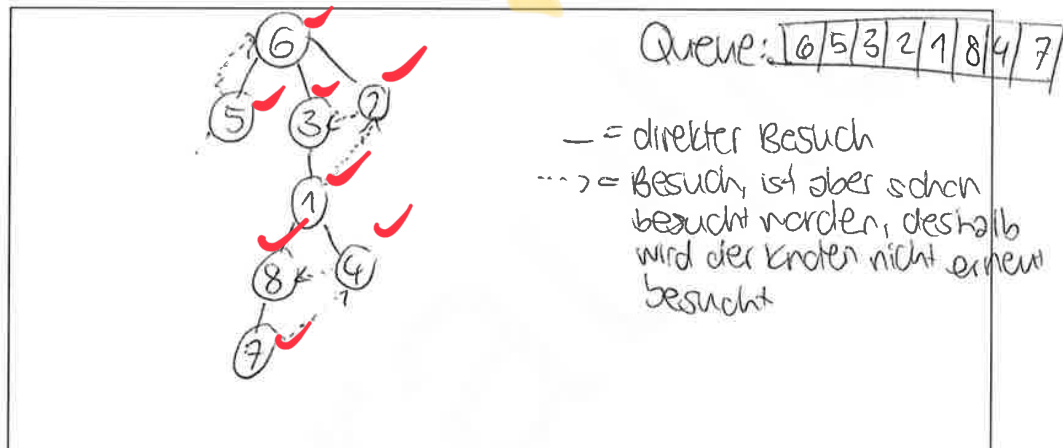 Queue: 6 5 3 2 1 8 4 7
6
5 3 2
1
8 4
7
— = direkter Besuch
....> = Besuch, ist aber schon
besucht worden, deshalb
wird der Knoten nicht erneut
besucht